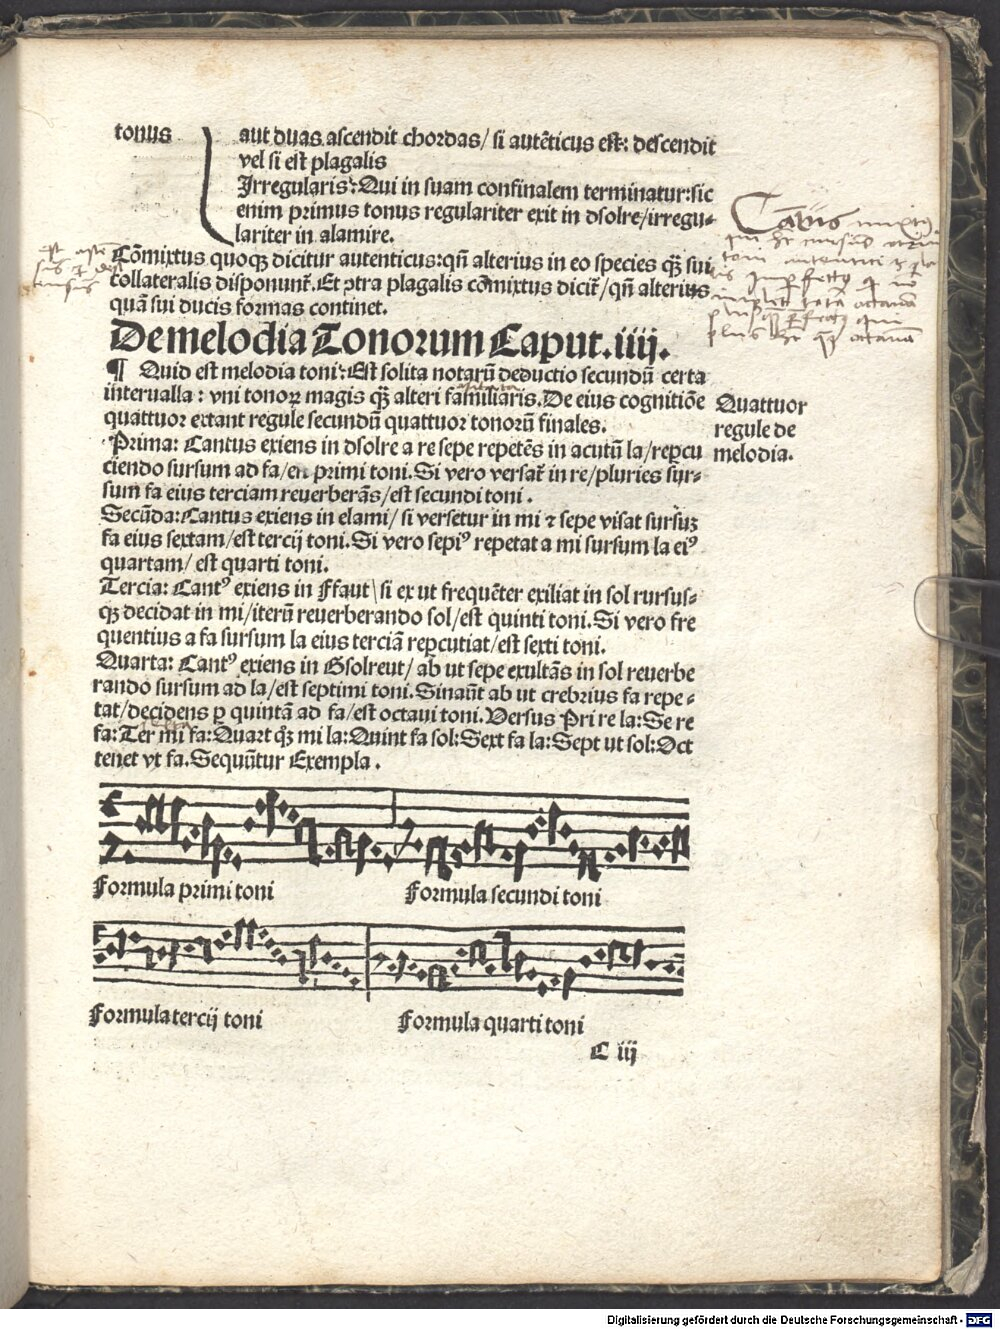 tonus
aut duas ascendit chordas/ si autēticus est: descendit
vel si est plagalis
Irregularis: Qui in suam confinalem terminatur: sic
enim primus tonus regulariter exit in dsolre/irregu-
lariter in alamire.
Cōmixtus quoqꝫ dicitur autenticus: qñ alterius in eo species qꝫ̃ sui
collateralis disponunt̃. Et ꝯtra plagalis cōmixtus dicit̃/ qñ alterius
quã sui ducis formas continet.
De melodia Tonorum Caput.iiij.
¶ Quid est melodia toni: Est solita notarū deductio secundū certa
interualla: vni tonoꝝ magis qꝫ̃ alteri familiaris. De eius cognitiōe
quattuor extant regule secundū quattuor tonorū finales.
Quattuor
regule de
melodia.
Prima: Cantus exiens in dsolre a re sepe repetēs in acutū la/ repcu
ciendo sursum ad fa/ en primi toni. Si vero versat̃ in re/ pluries sur-
sum fa eius terciam reuerberãs/ est secundi toni.
Secūda: Cantus exiens in elami/ si versetur in mi ⁊ sepe visat sursuꝫ
fa eius sextam/ est tercij toni. Si vero sepiꝰ repetat a mi sursum la eiꝰ
quartam/ est quarti toni.
Tercia: Cantꝰ exiens in Ffaut \ si ex ut frequēter exiliat in sol rursus-
qꝫ decidat in mi/ iterū reuerberando sol/ est quinti toni. Si vero fre
quentius a fa sursum la eius terciã repcutiat/ est sexti toni.
Quarta: Cantꝰ exiens in Gsolreut/ ab ut sepe exultãs in sol reuerbe
rando sursum ad la/ est septimi toni. Sinaūt ab ut crebrius fa repe-
tat/ decidens ꝑ quintã ad fa/ est octaui toni. Versus Pri re la: Se re
fa: Ter mi fa: Quart qꝫ mi la: Quint fa sol: Sext fa la: Sept ut sol: Oct
tenet vt fa. Sequūtur Exempla.
Formula primi toni
Formula secundi toni
Formula tercij toni
Formula quarti toni
C iij
Digitalisierung gefördert durch die Deutsche Forschungsgemeinschaft - DFG